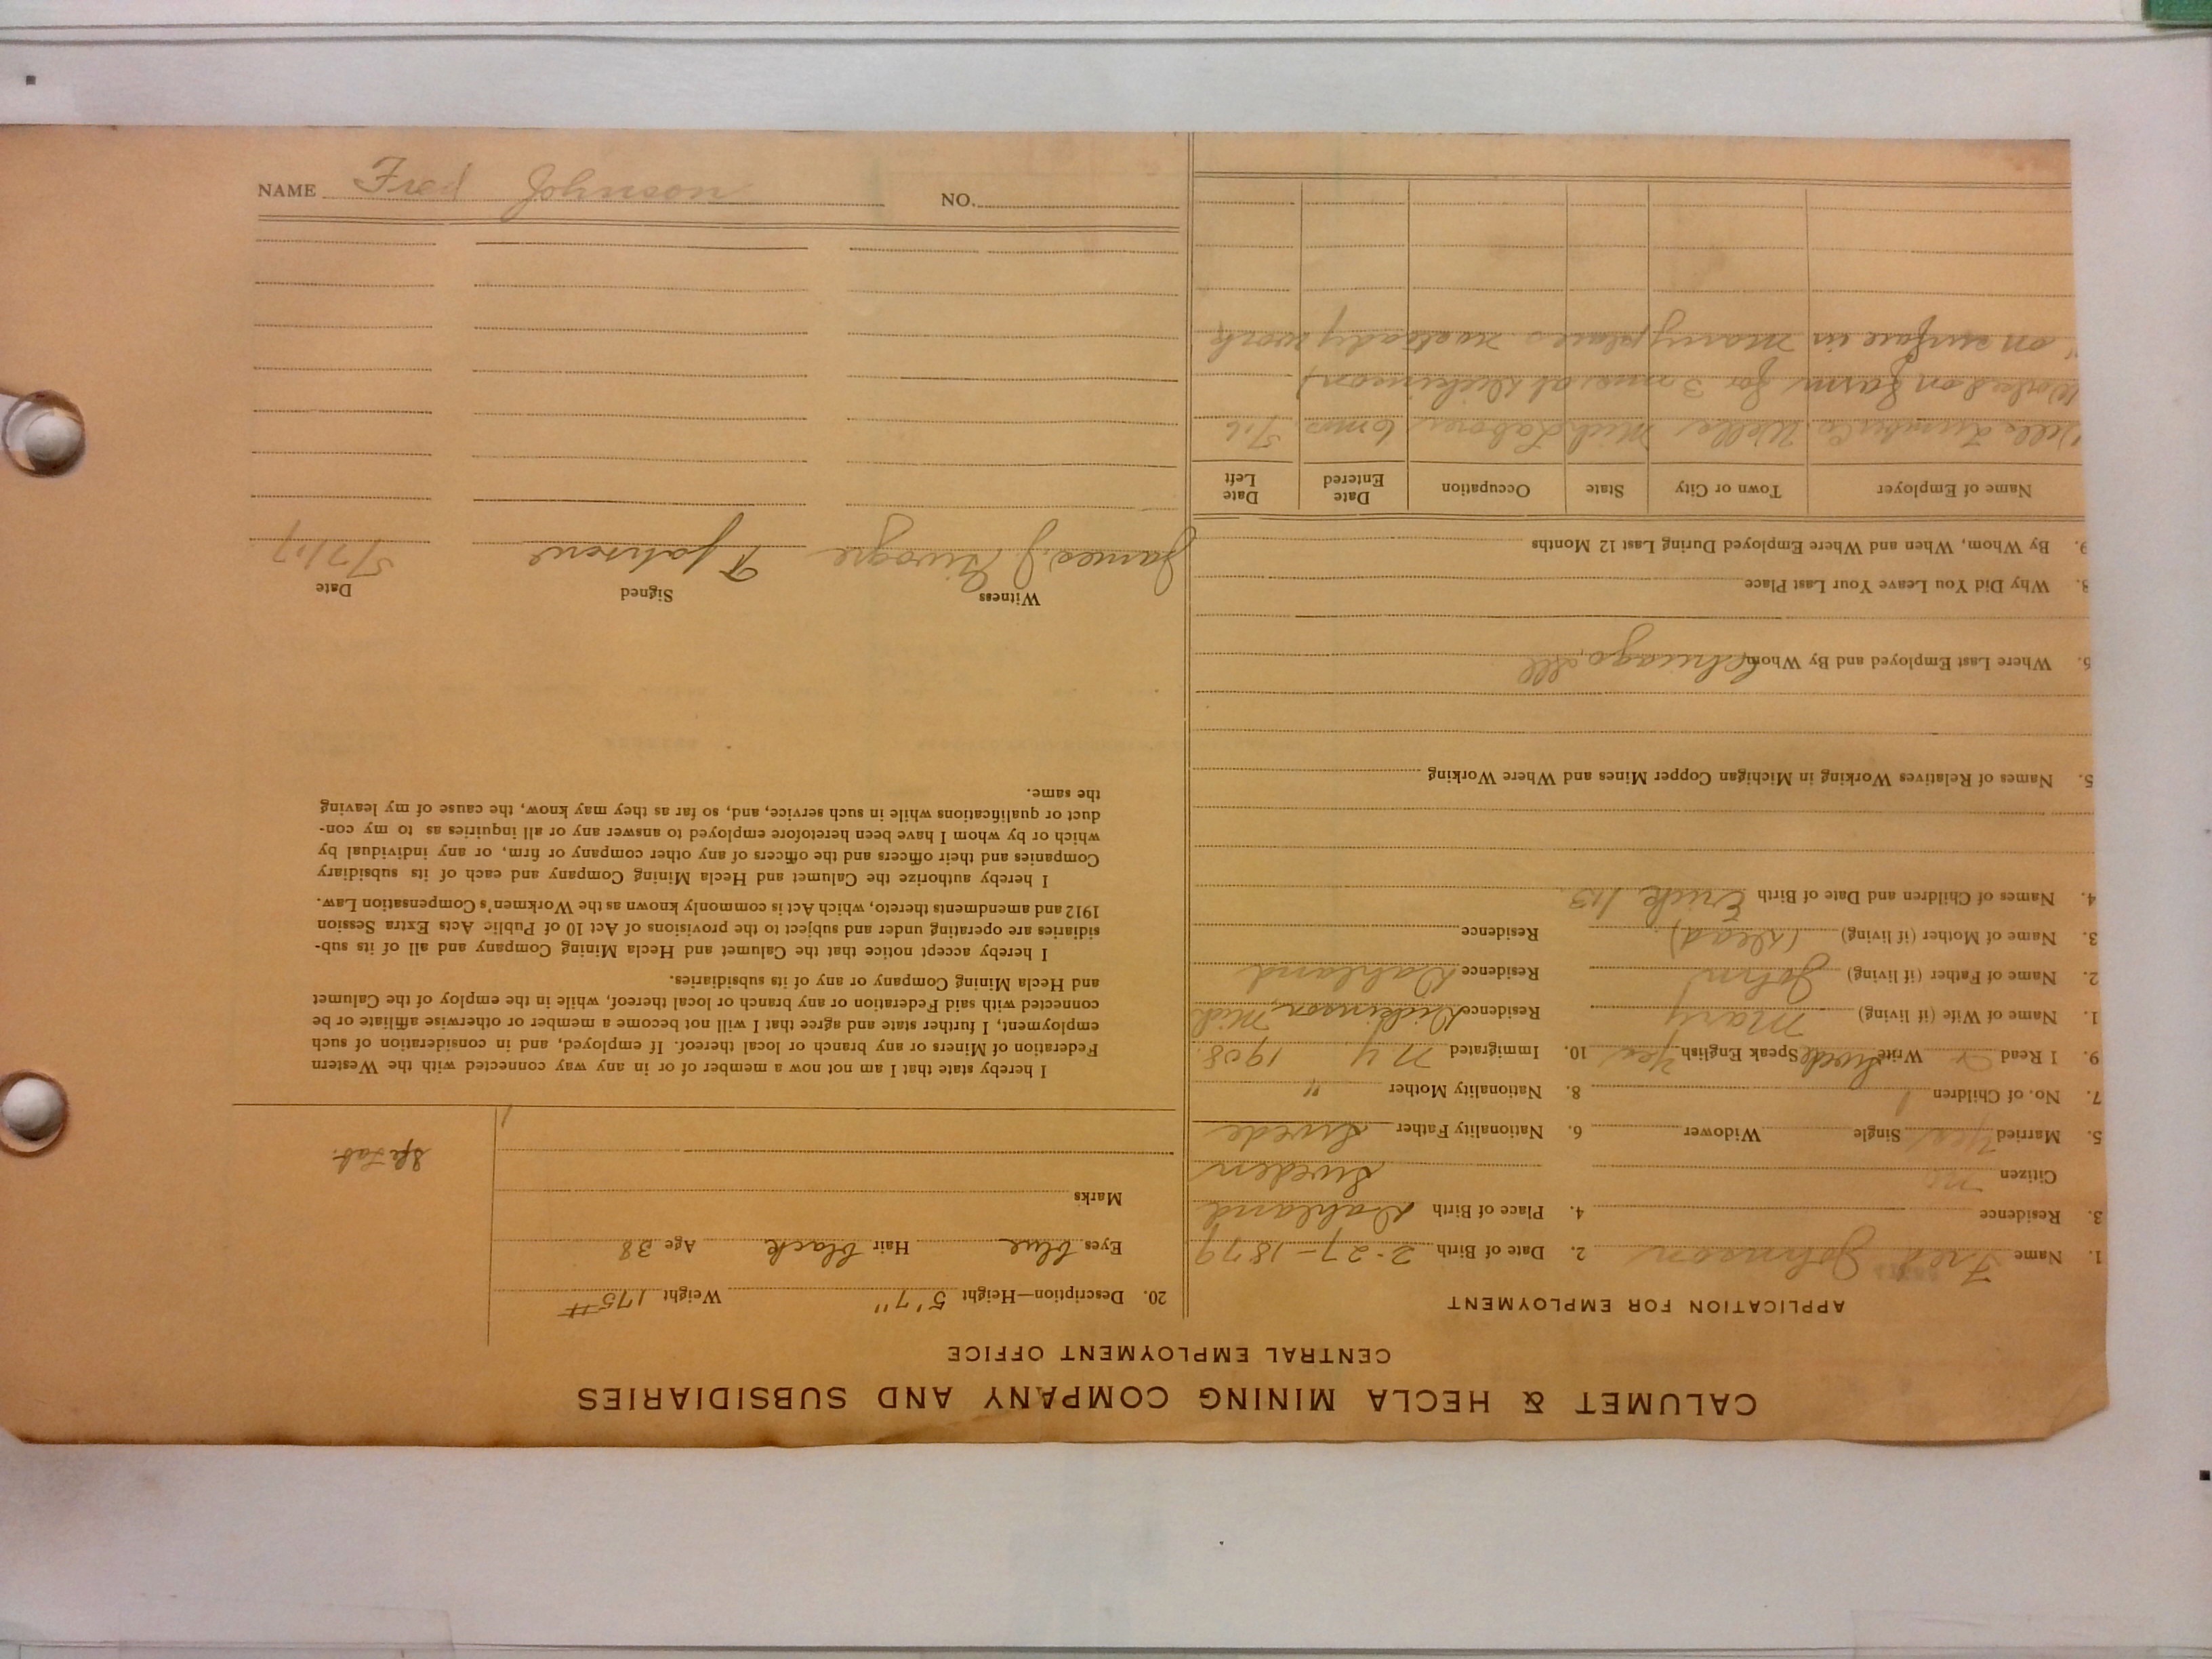 CALUMET & HECLA MINING COMPANY AND SUBSIDIARIES
CENTRAL EMPLOYMENT OFFICE
APPLICATION FOR EMPLOYMENT
1. Name Fred Johnson 2. Date of Birth 2-27-1879
3. Residence 4. Place of Birth Dahland
Citizen no Sweden
5. Married Yes Single Widower 6. Nationality Father Swede
7. No. of Children 1 8. Nationality Mother "
9. I Read Write Swede Speak English Yes 10. Immigrated N Y 1908
1. Name of Wife (if living) Mary Residence Dickinson, Mich
2. Name of Father (if living) John Residence Dahland
3. Name of Mother (if living) (Dead) Residence
4. Names of Children and Date of Birth Erick
5. Names of Relatives Working in Michigan Copper Mines and Where Working
6. Where Last Employed and By Whom Chicago, Ill
Why Did You Leave Your Last Place
9. By Whom, When and Where Employed During Last 12 Months
Name of Employer Town or City State Occupation Date Entered Date Left
Lumber Co. Wells Mich Laborer 6 mos.
Worked on farm for 3 mos. at Dickinson
on surface in many places work
20. Description—Height 5'7" Weight 175#
Eyes blue Hair black Age 38
Marks
Lab.
I hereby state that I am not now a member of or in any way connected with the Western
Federation of Miners or any branch or local thereof. If employed, and in consideration of such
employment, I further state and agree that I will not become a member or otherwise affiliate or be
connected with said Federation or any branch or local thereof, while in the employ of the Calumet
and Hecla Mining Company or any of its subsidiaries.
I hereby accept notice that the Calumet and Hecla Mining Company and all of its sub-
sidiaries are operating under and subject to the provisions of Act 10 of Public Acts Extra Session
1912 and amendments thereto, which Act is commonly known as the Workmen's Compensation Law.
I hereby authorize the Calumet and Hecla Mining Company and each of its subsidiary
Companies and their officers and the officers of any other company or firm, or any individual by
which or by whom I have been heretofore employed to answer any or all inquiries as to my con-
duct or qualifications while in such service, and, so far as they may know, the cause of my leaving
the same.
Witness Signed Date
James J. F Johnson 5/7/17
NAME Fred Johnson NO.